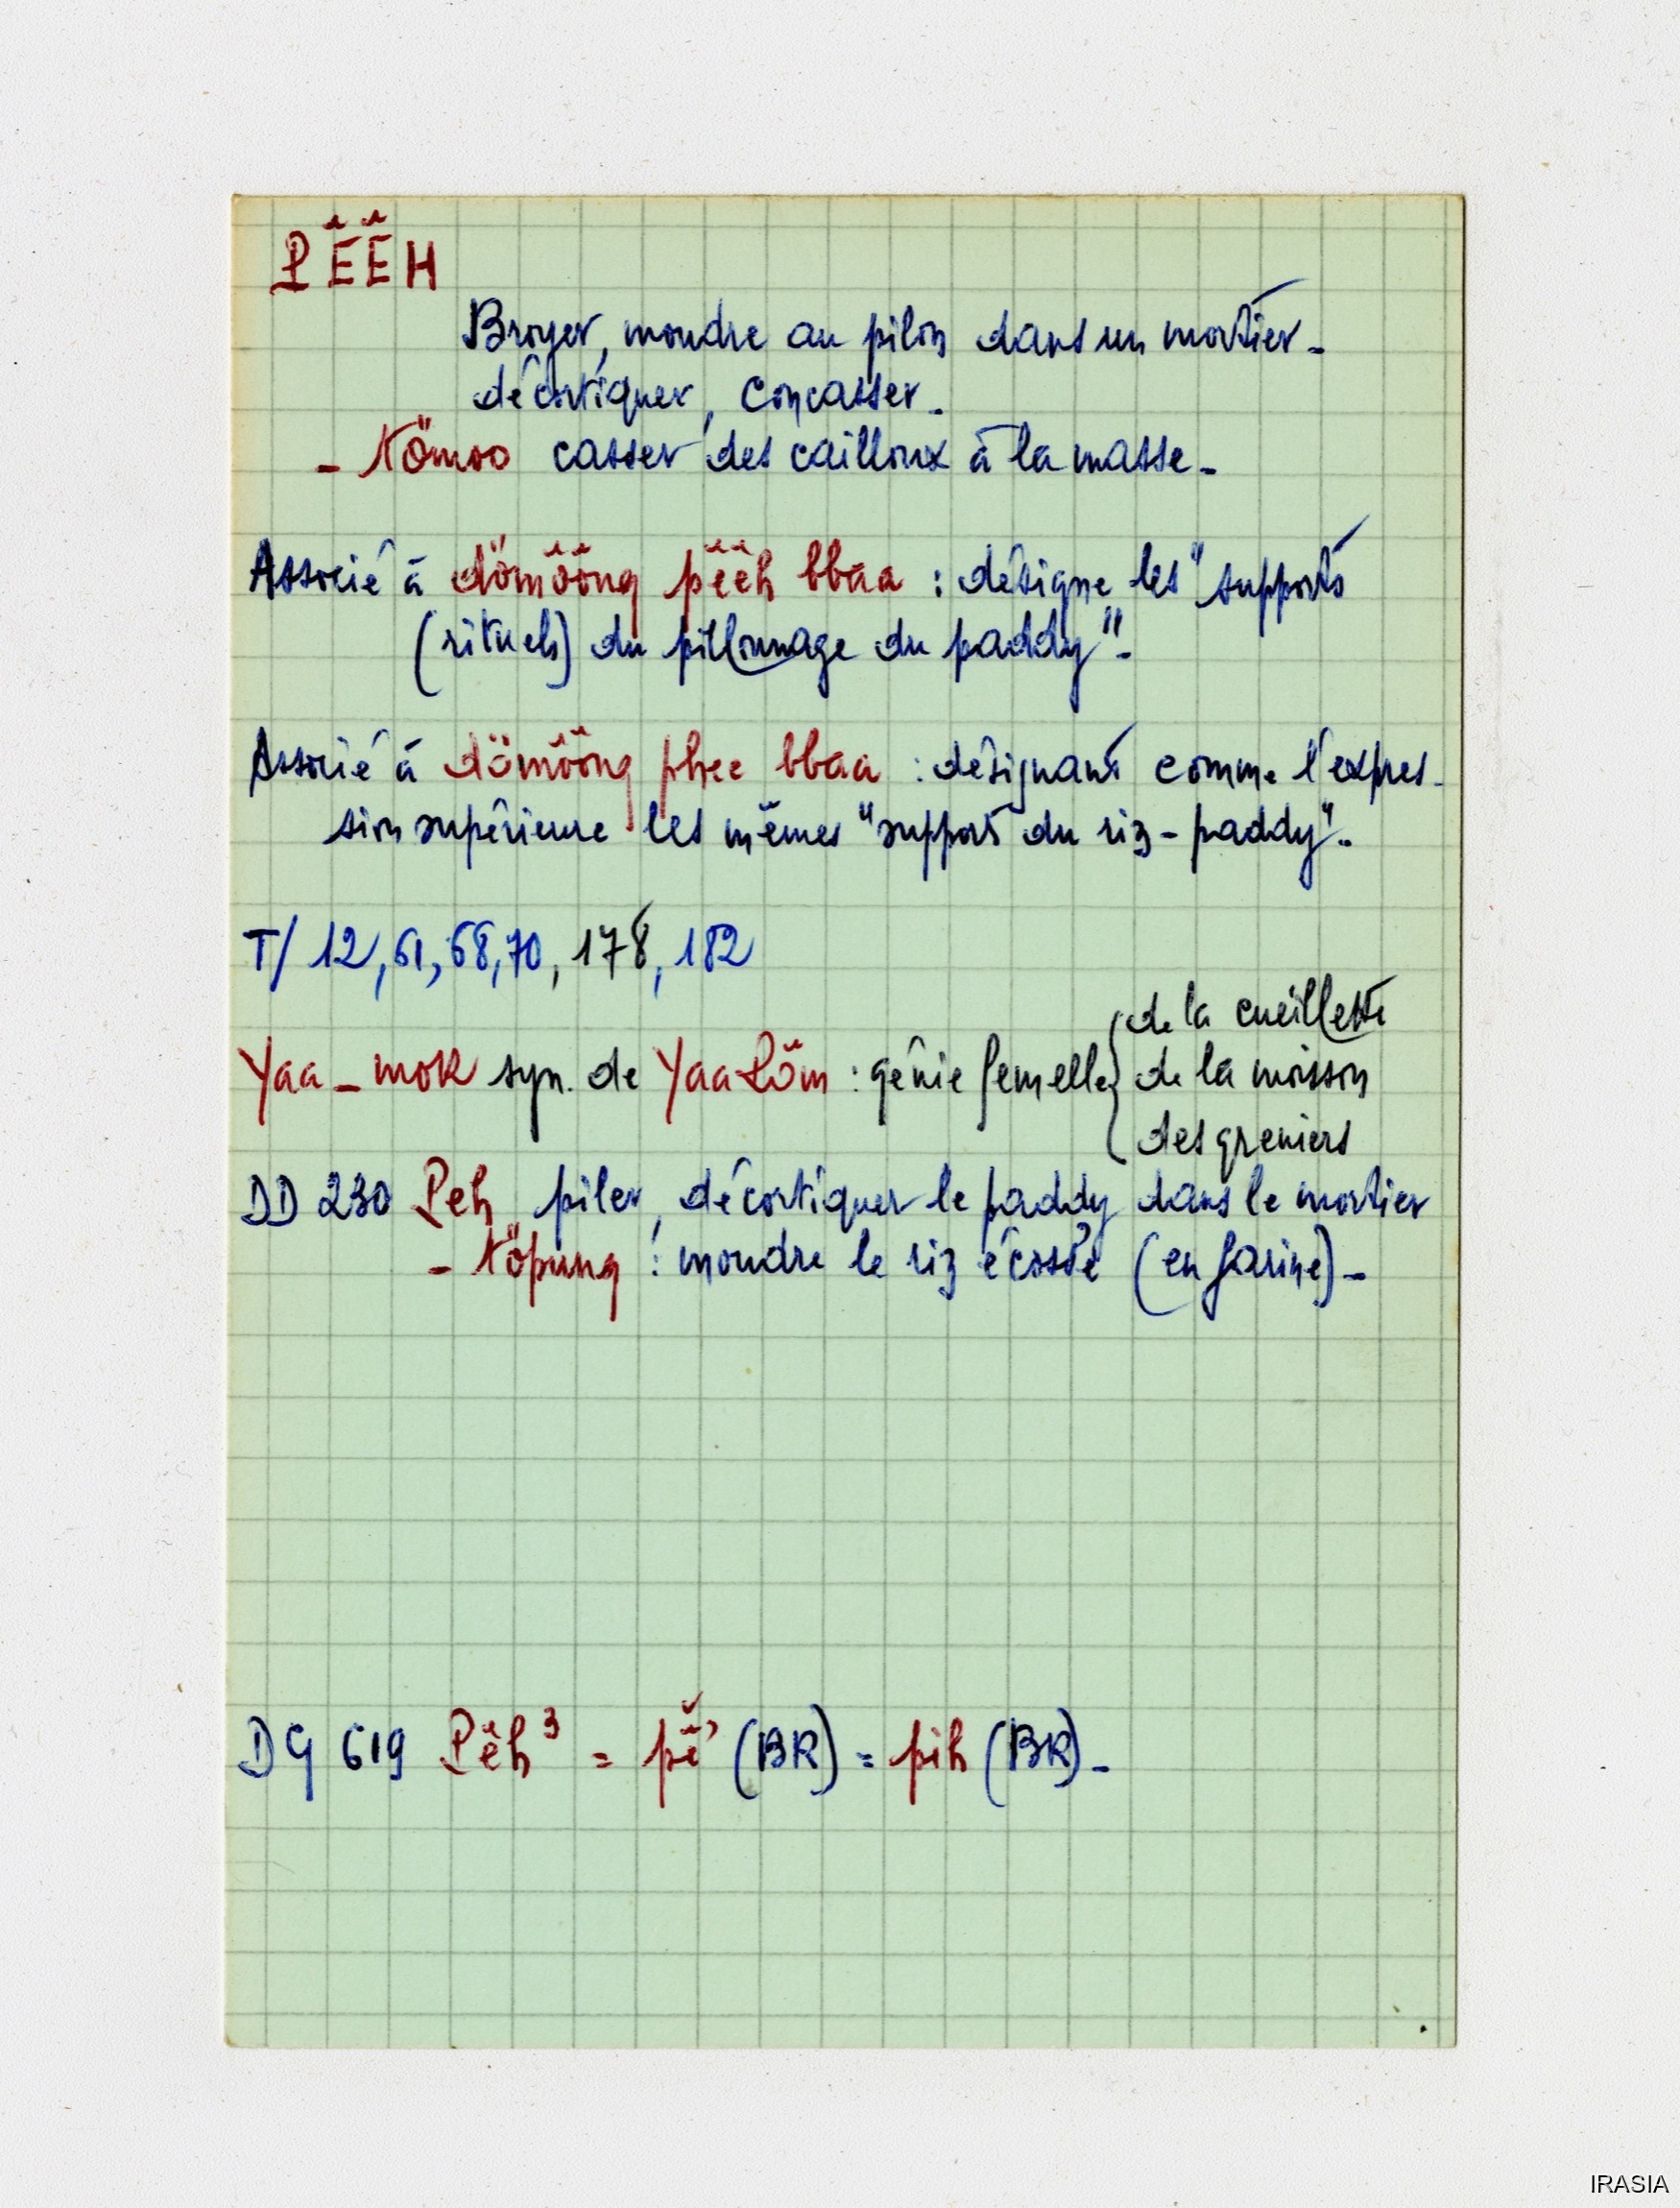 PÊÊH
Broyer, moudre au pilon dans un mortier -
décortiquer, concasser -
- tömoo casser des cailloux à la masse -
Associé à dömôông pêêh bbaa : désigne les "supports
(rituels) du pillonnage du paddy" -
Associé à dömôông phee bbaa : désignant comme l'expres-
sion supérieure les mêmes "support du riz-paddy" -
T/ 12, 61, 68, 70, 178, 182
de la cueillette
Yaa-mok syn. de Yaa Lôm : génie femelle { de la moisson
des greniers
DD 230 Peh piler, décortiquer le paddy dans le mortier
- töpung : moudre le riz écossé (en farine) -
DG 619 Pêh³ = (BR) = pih (BR) -
IRASIA